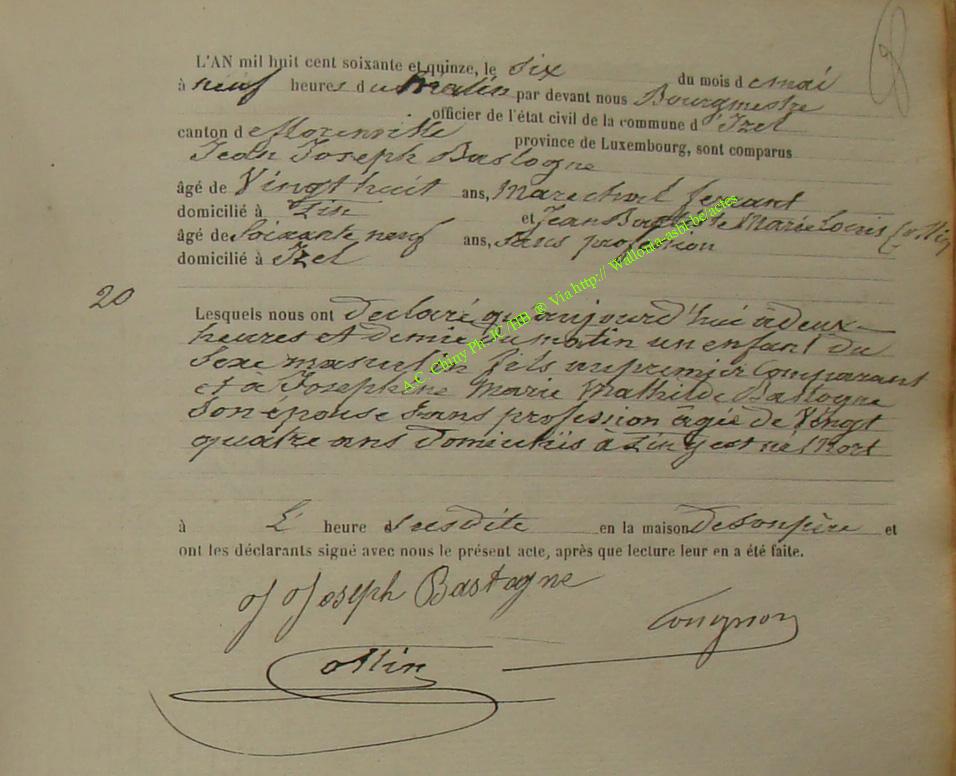 L'AN mil huit cent soixante et quinze, le six du mois de mai
à neuf heures du Matin par devant nous Bourgmestre
officier de l'état civil de la commune d'Izel
canton de florenville province de Luxembourg, sont comparus
Jean Joseph Bastogne
âgé de Vingt huit ans, Marechal ferrant
domicilié à et Jean Baptiste Marie Louis Collin
âgé de Soixante neuf ans, sans profession
domicilié à Izel
20
Lesquels nous ont declaré qu'aujourd'hui à deux
heures et demie du matin un enfant du
Sexe masculin fils au premier Comparant
et a Josephine Marie Mathilde Bastogne
Son épouse sans profession âgée de Vingt
quatre ans domiciliés à y est né Mort
à L' heure susdite en la maison de son père et
ont les déclarants signé avec nous le présent acte, après que lecture leur en a été faite.
J J Joseph Bastogne
Collin
A.C. Chiny Ph. JC /HB ® Via http:// Wallonia-asbl-be/actes